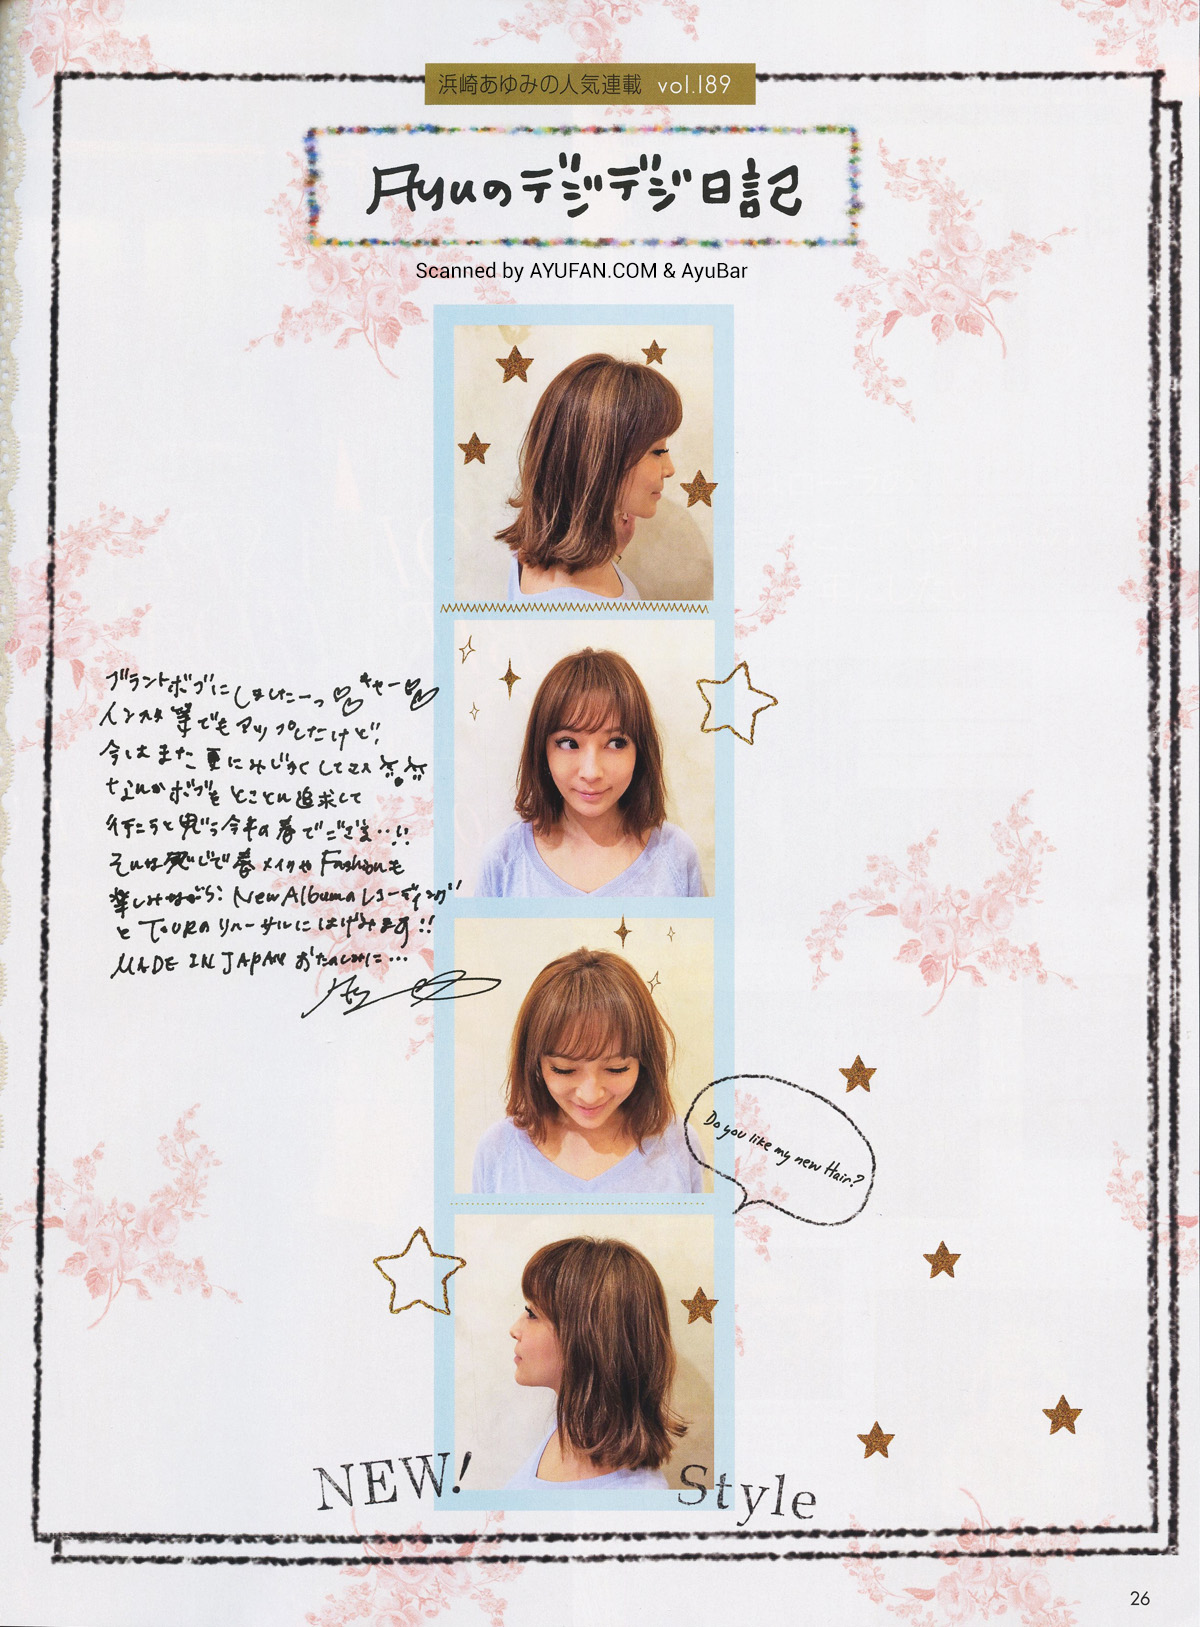 浜崎あゆみの人気連載 vol.189
Ayuのデジデジ日記
Scanned by AYUFAN.COM & AyuBar
ブラントボブにしましたーっ♡キャー♡
インスタ等でもアップしたけど、
今はまた更にみじかくしてます
なんかボブをとことん追求して
行こうと思う今年の春でござま…!!
そんな感じで春メイクや Fashionも
楽しみながら、New Albumのレコーディング
と TOURのリハーサルにはげみます!!
MADE IN JAPAN おたのしみに…
Do you like my new Hair?
NEW! Style
26